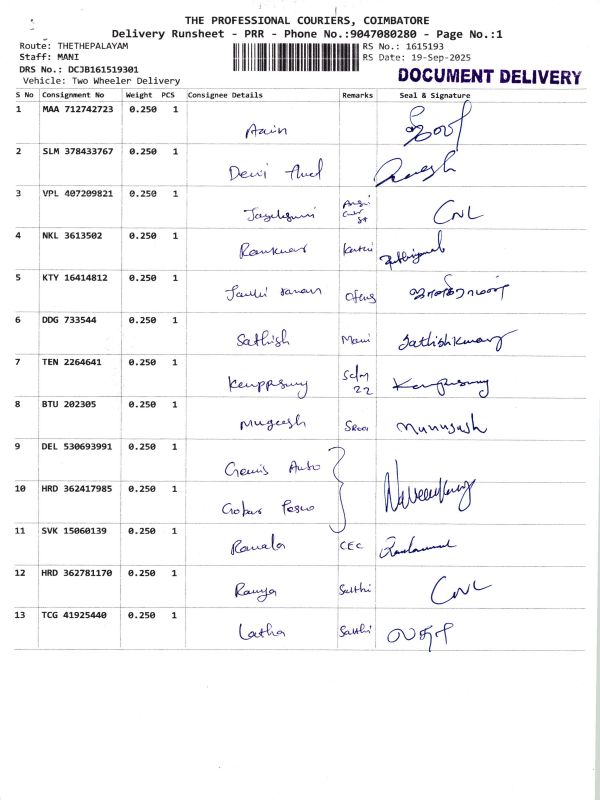 THE PROFESSIONAL COURIERS, COIMBATORE
Delivery Runsheet - PRR - Phone No.:9047080280 - Page No.:1
Route: THETHEPALAYAM
RS No.: 1615193
Staff: MANI
RS Date: 19-Sep-2025
DRS No.: DCJB161519301
Vehicle: Two Wheeler Delivery
DOCUMENT DELIVERY
S No Consignment No Weight PCS Consignee Details Remarks Seal & Signature
1 MAA 712742723 0.250 1
2 SLM 378433767 0.250 1
Devi
3 VPL 407209821 0.250 1
CNL
4 NKL 3613502 0.250 1
Ramkumar
5 KTY 16414812 0.250 1
6 DDG 733544 0.250 1
Sathish Mani Sathishkumar
7 TEN 2264641 0.250 1
22
8 BTU 202305 0.250 1
Mugeesh
9 DEL 530693991 0.250 1
Auto
10 HRD 362417985 0.250 1
Naveenkumar
11 SVK 15060139 0.250 1
CEC
12 HRD 362781170 0.250 1
Ramya Sakthi CNL
13 TCG 41925440 0.250 1
Latha Sakthi